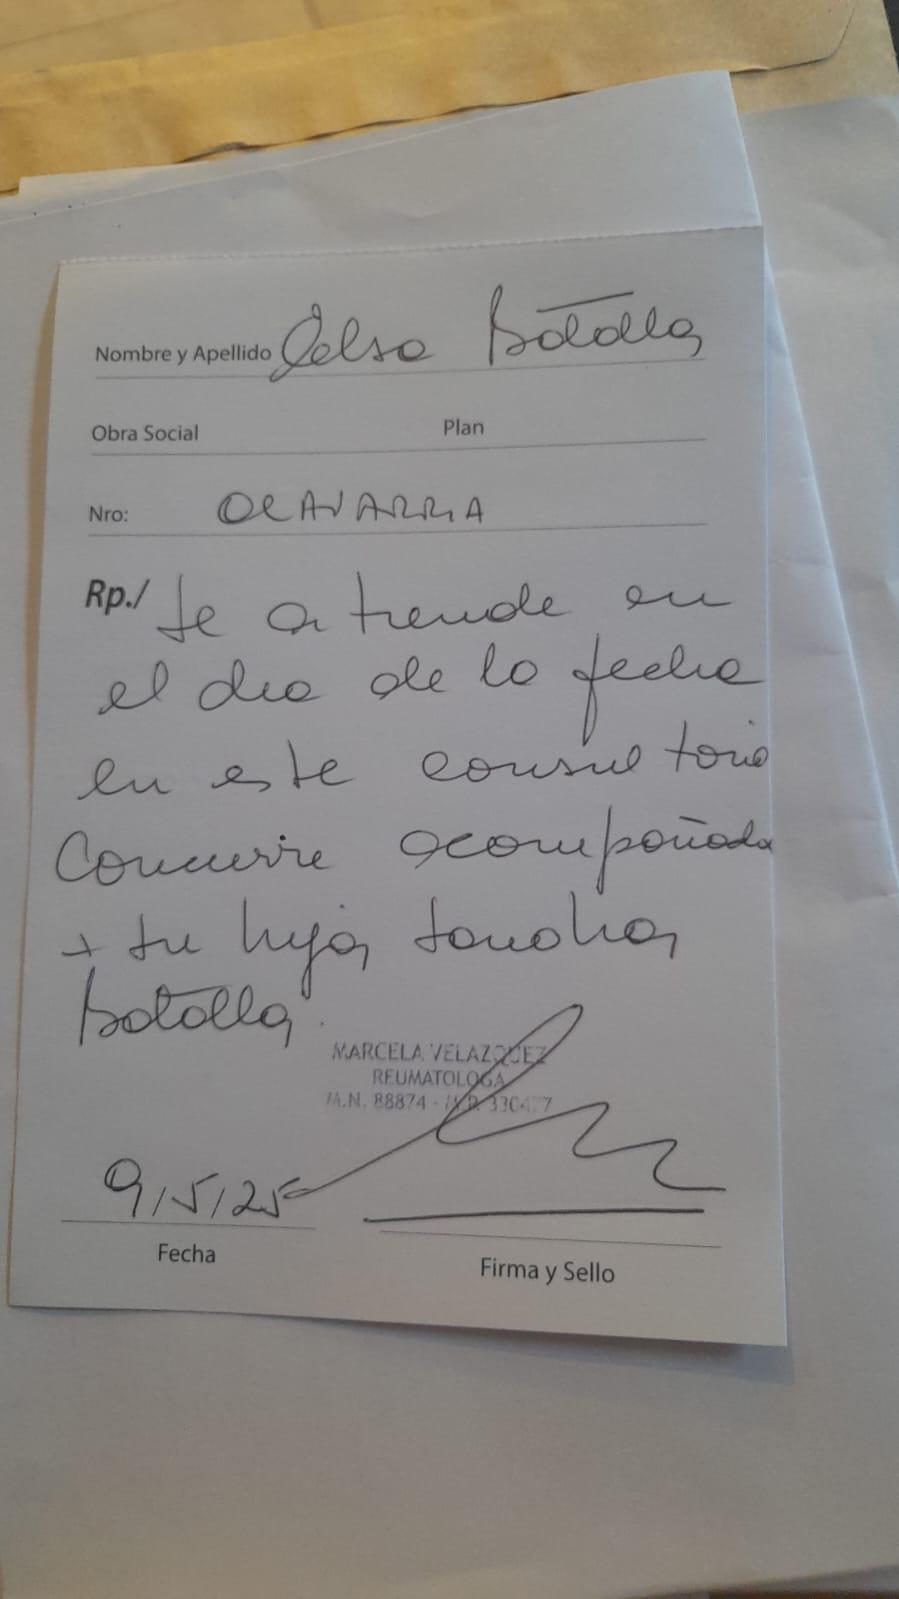 Nombre y Apellido Celso Botolla
Obra Social Plan
Nro: OLAVARRIA
Rp./ se atiende en
el dia de la fecha
en este consultorio
Concurre acompañada
+ su hija
Botolla.
MARCELA VELAZQUEZ
REUMATOLOGA
M.N. 88874 - M.P. 330477
9/5/25
Fecha
Firma y Sello